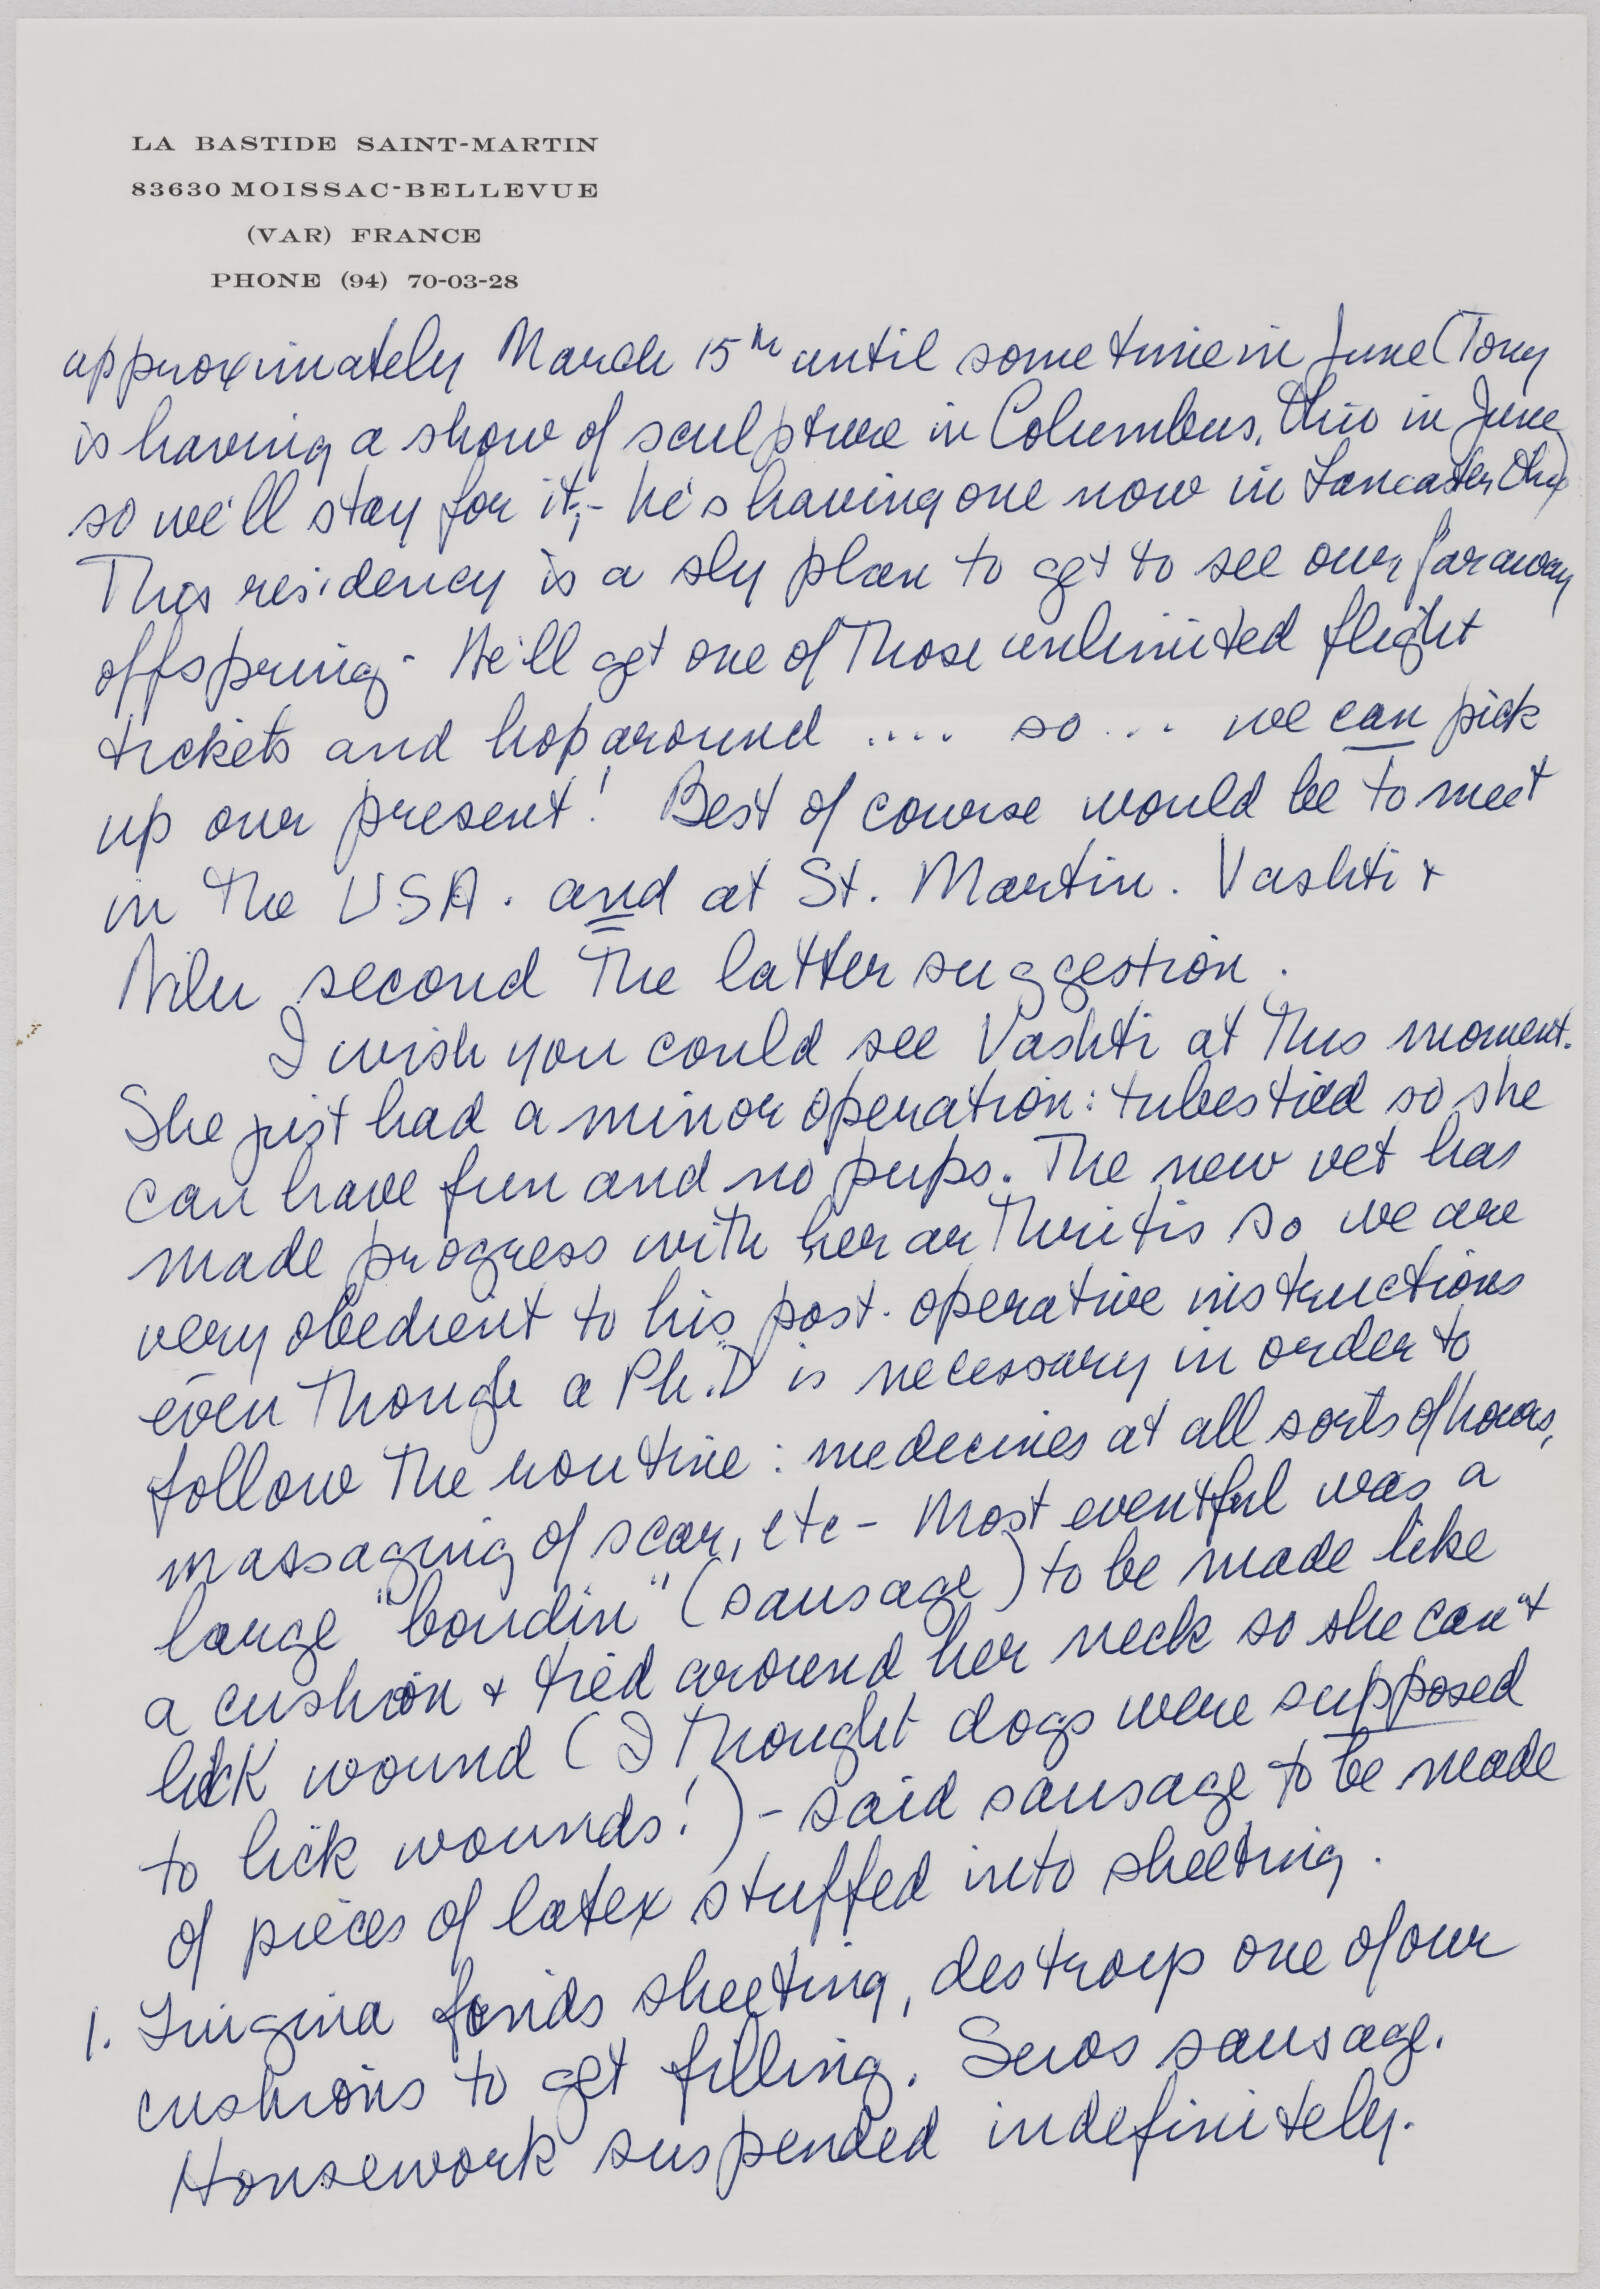 LA BASTIDE SAINT-MARTIN
83630 MOISSAC-BELLEVUE
(VAR) FRANCE
PHONE (94) 70-03-28
approximately March 15th until some time in June (Tony
is having a show of sculpture in Columbus, Ohio in June
so we'll stay for it, - he's having one now in Lancaster Ohio)
This residency is a sly plan to get to see our faraway
offspring - We'll get one of those unlimited flight
tickets and hop around .... so ... we can pick
up our present! Best of course would be to meet
in the USA. and at St. Martin. Vashti +
Nilu second the latter suggestion.
I wish you could see Vashti at this moment.
She just had a minor operation: tubes tied so she
can have fun and no pups. The new vet has
made progress with her arthritis so we are
very obedient to his post-operative instructions
even though a Ph.D is necessary in order to
follow the routine: medecines at all sorts of hours,
massaging of scar, etc - Most eventful was a
large "boudin" (sausage) to be made like
a cushion + tied around her neck so she can't
lick wound (I thought dogs were supposed
to lick wounds!) - said sausage to be made
of pieces of latex stuffed into sheeting.
1. Luigina finds sheeting, destroys one of our
cushions to get filling. Sews sausage.
Housework suspended indefinitely.